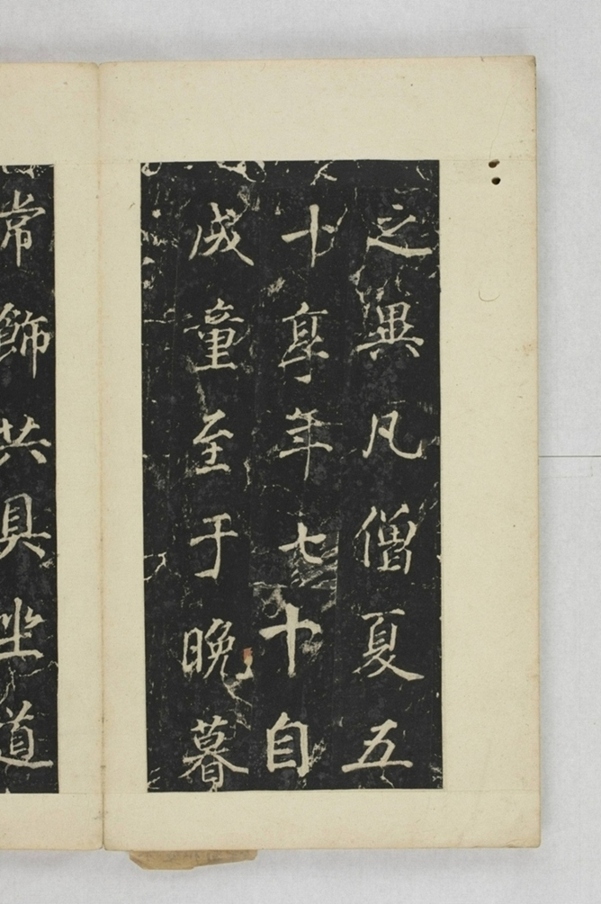 之異凡僧夏五
十享年七十自
成童至于晚暮
常飾共具坐道